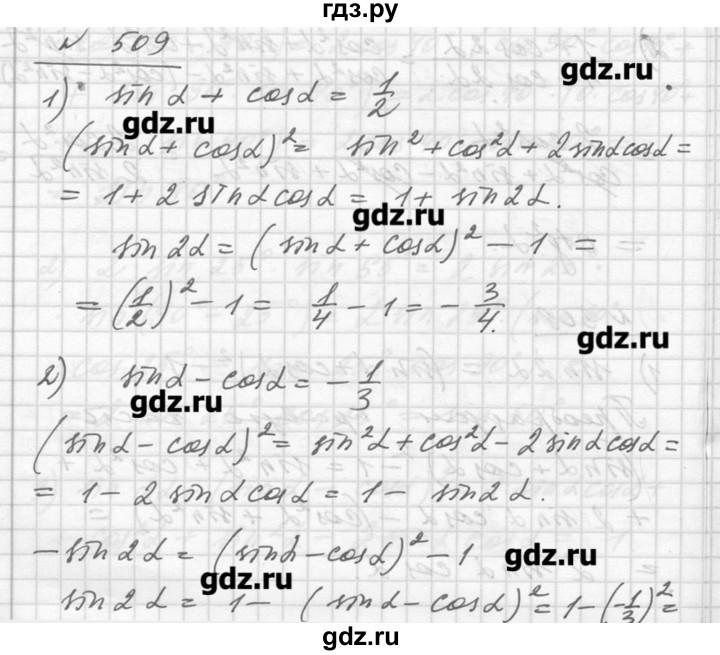 гдз.ру
№ 509
gdz.ru
1) sin α + cos α = 1/2
gdz.ru
(sin α + cos α)² = sin² + cos²α + 2 sin α cos α =
= 1 + 2 sin α cos α = 1 + sin 2α.
gdz.ru
sin 2α = (sin α + cos α)² − 1 =
= (1/2)² − 1 = 1/4 − 1 = − 3/4.
gdz.ru
2) sin α − cos α = − 1/3
gdz.ru
(sin α − cos α)² = sin²α + cos²α − 2 sin α cos α =
= 1 − 2 sin α cos α = 1 − sin 2α.
− sin 2α = (sin α − cos α)² − 1
gdz.ru
gdz.ru
sin 2α = 1 − (sin α − cos α)² = 1 − (−1/3)² =
gdz.ru